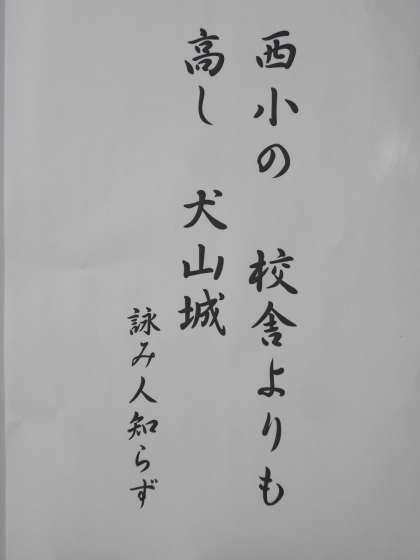 西小の　校舎よりも
高し　犬山城
詠み人知らず